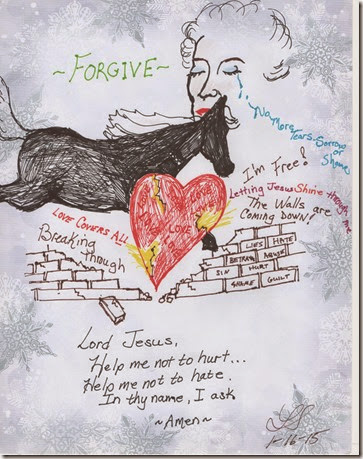 ~FORGIVE~
No More
Tears-Sorrow
or
Shame
I'm Free!
Letting Jesus Shine through me
The Walls are
Coming Down!
LOVE COVERS ALL
Breaking
through
LOVE
LIES HATE
BETRAYAL ABUSE
SIN HURT
SHAME GUILT
Lord Jesus,
Help me not to hurt...
Help me not to hate.
In thy name, I ask
~Amen~
1-16-15